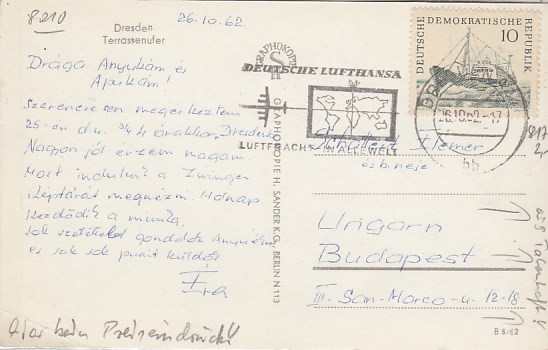 8210
26.10.62
Dresden
Terrassenufer
Drága Anyukám és
Apukám!
Szerencsésen megérkeztem
25-én du. 3/4 4 órakor, Dresden
Nagyon jól érzem magam.
Most indulunk a Zwinger
képtárát megnézni. Holnap
kezdődik a munka.
Sok szeretettel gondolok
és sok sok puszit küldök
GRAPHOKOPIE
DEUTSCHE LUFTHANSA
LUFTFRACHT IN ALLE WELT
GRAPHOKOPIE H. SANDER K.G., BERLIN N 113
DEUTSCHE DEMOKRATISCHE REPUBLIK
10
26.10.62.-17
bb
Elemér
és b. neje
Ungarn
Budapest
III. San-Marco-u. 12-18
B 8/62